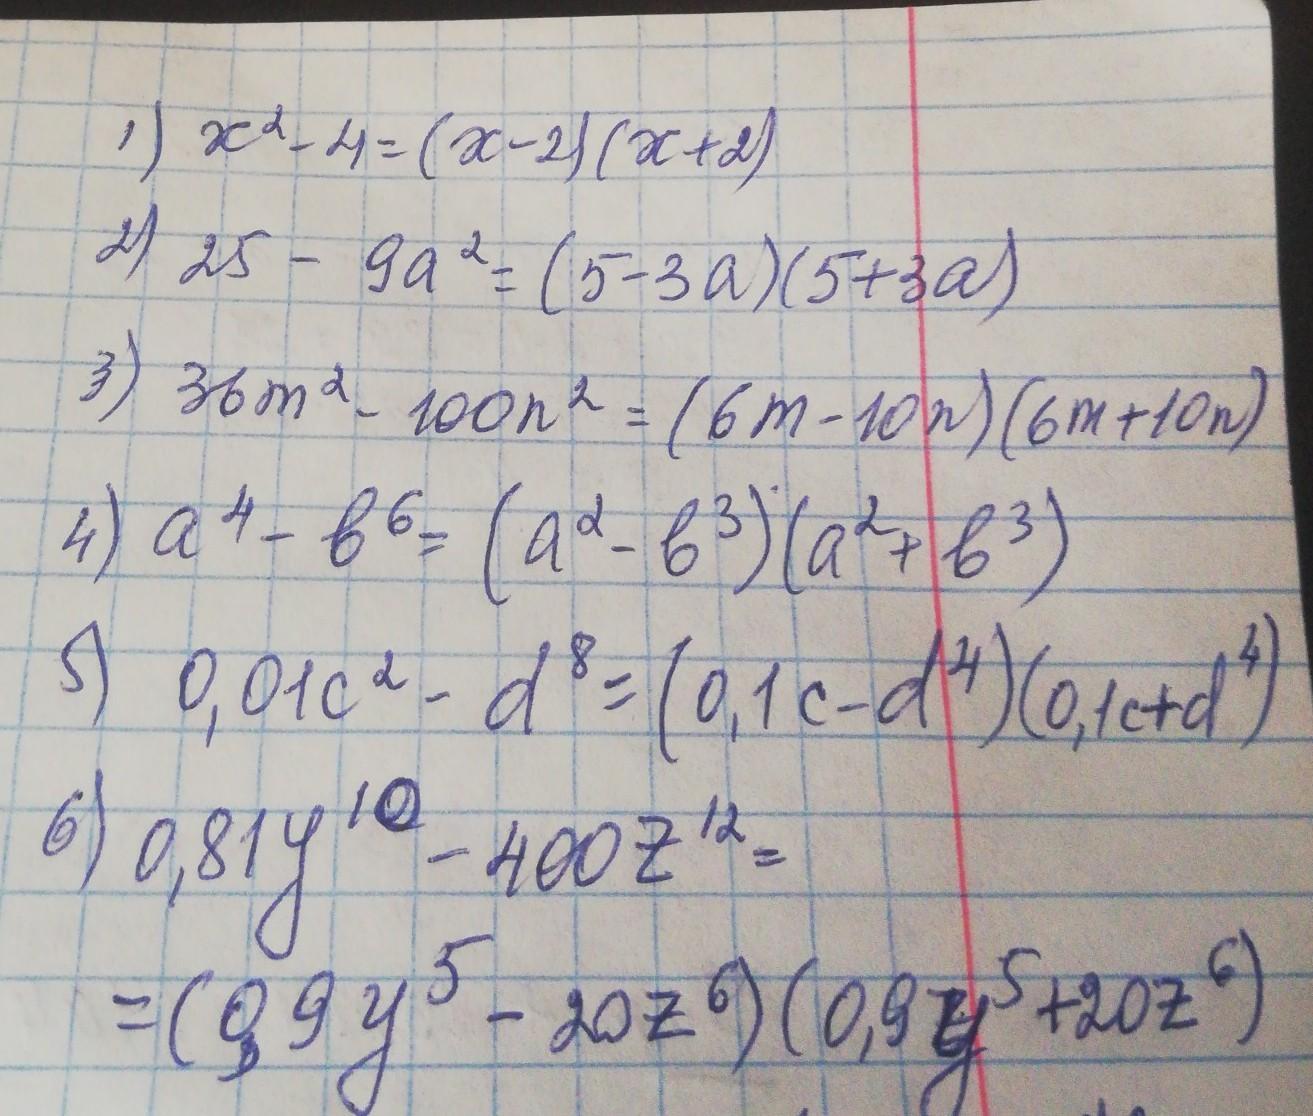 1) x² - 4 = (x - 2)(x + 2)
2) 25 - 9a² = (5 - 3a)(5 + 3a)
3) 36m² - 100n² = (6m - 10n)(6m + 10n)
4) a⁴ - b⁶ = (a² - b³)(a² + b³)
5) 0,01c² - d⁸ = (0,1c - d⁴)(0,1c + d⁴)
6) 0,81y¹⁰ - 400z¹² =
= (0,9y⁵ - 20z⁶)(0,9y⁵ + 20z⁶)